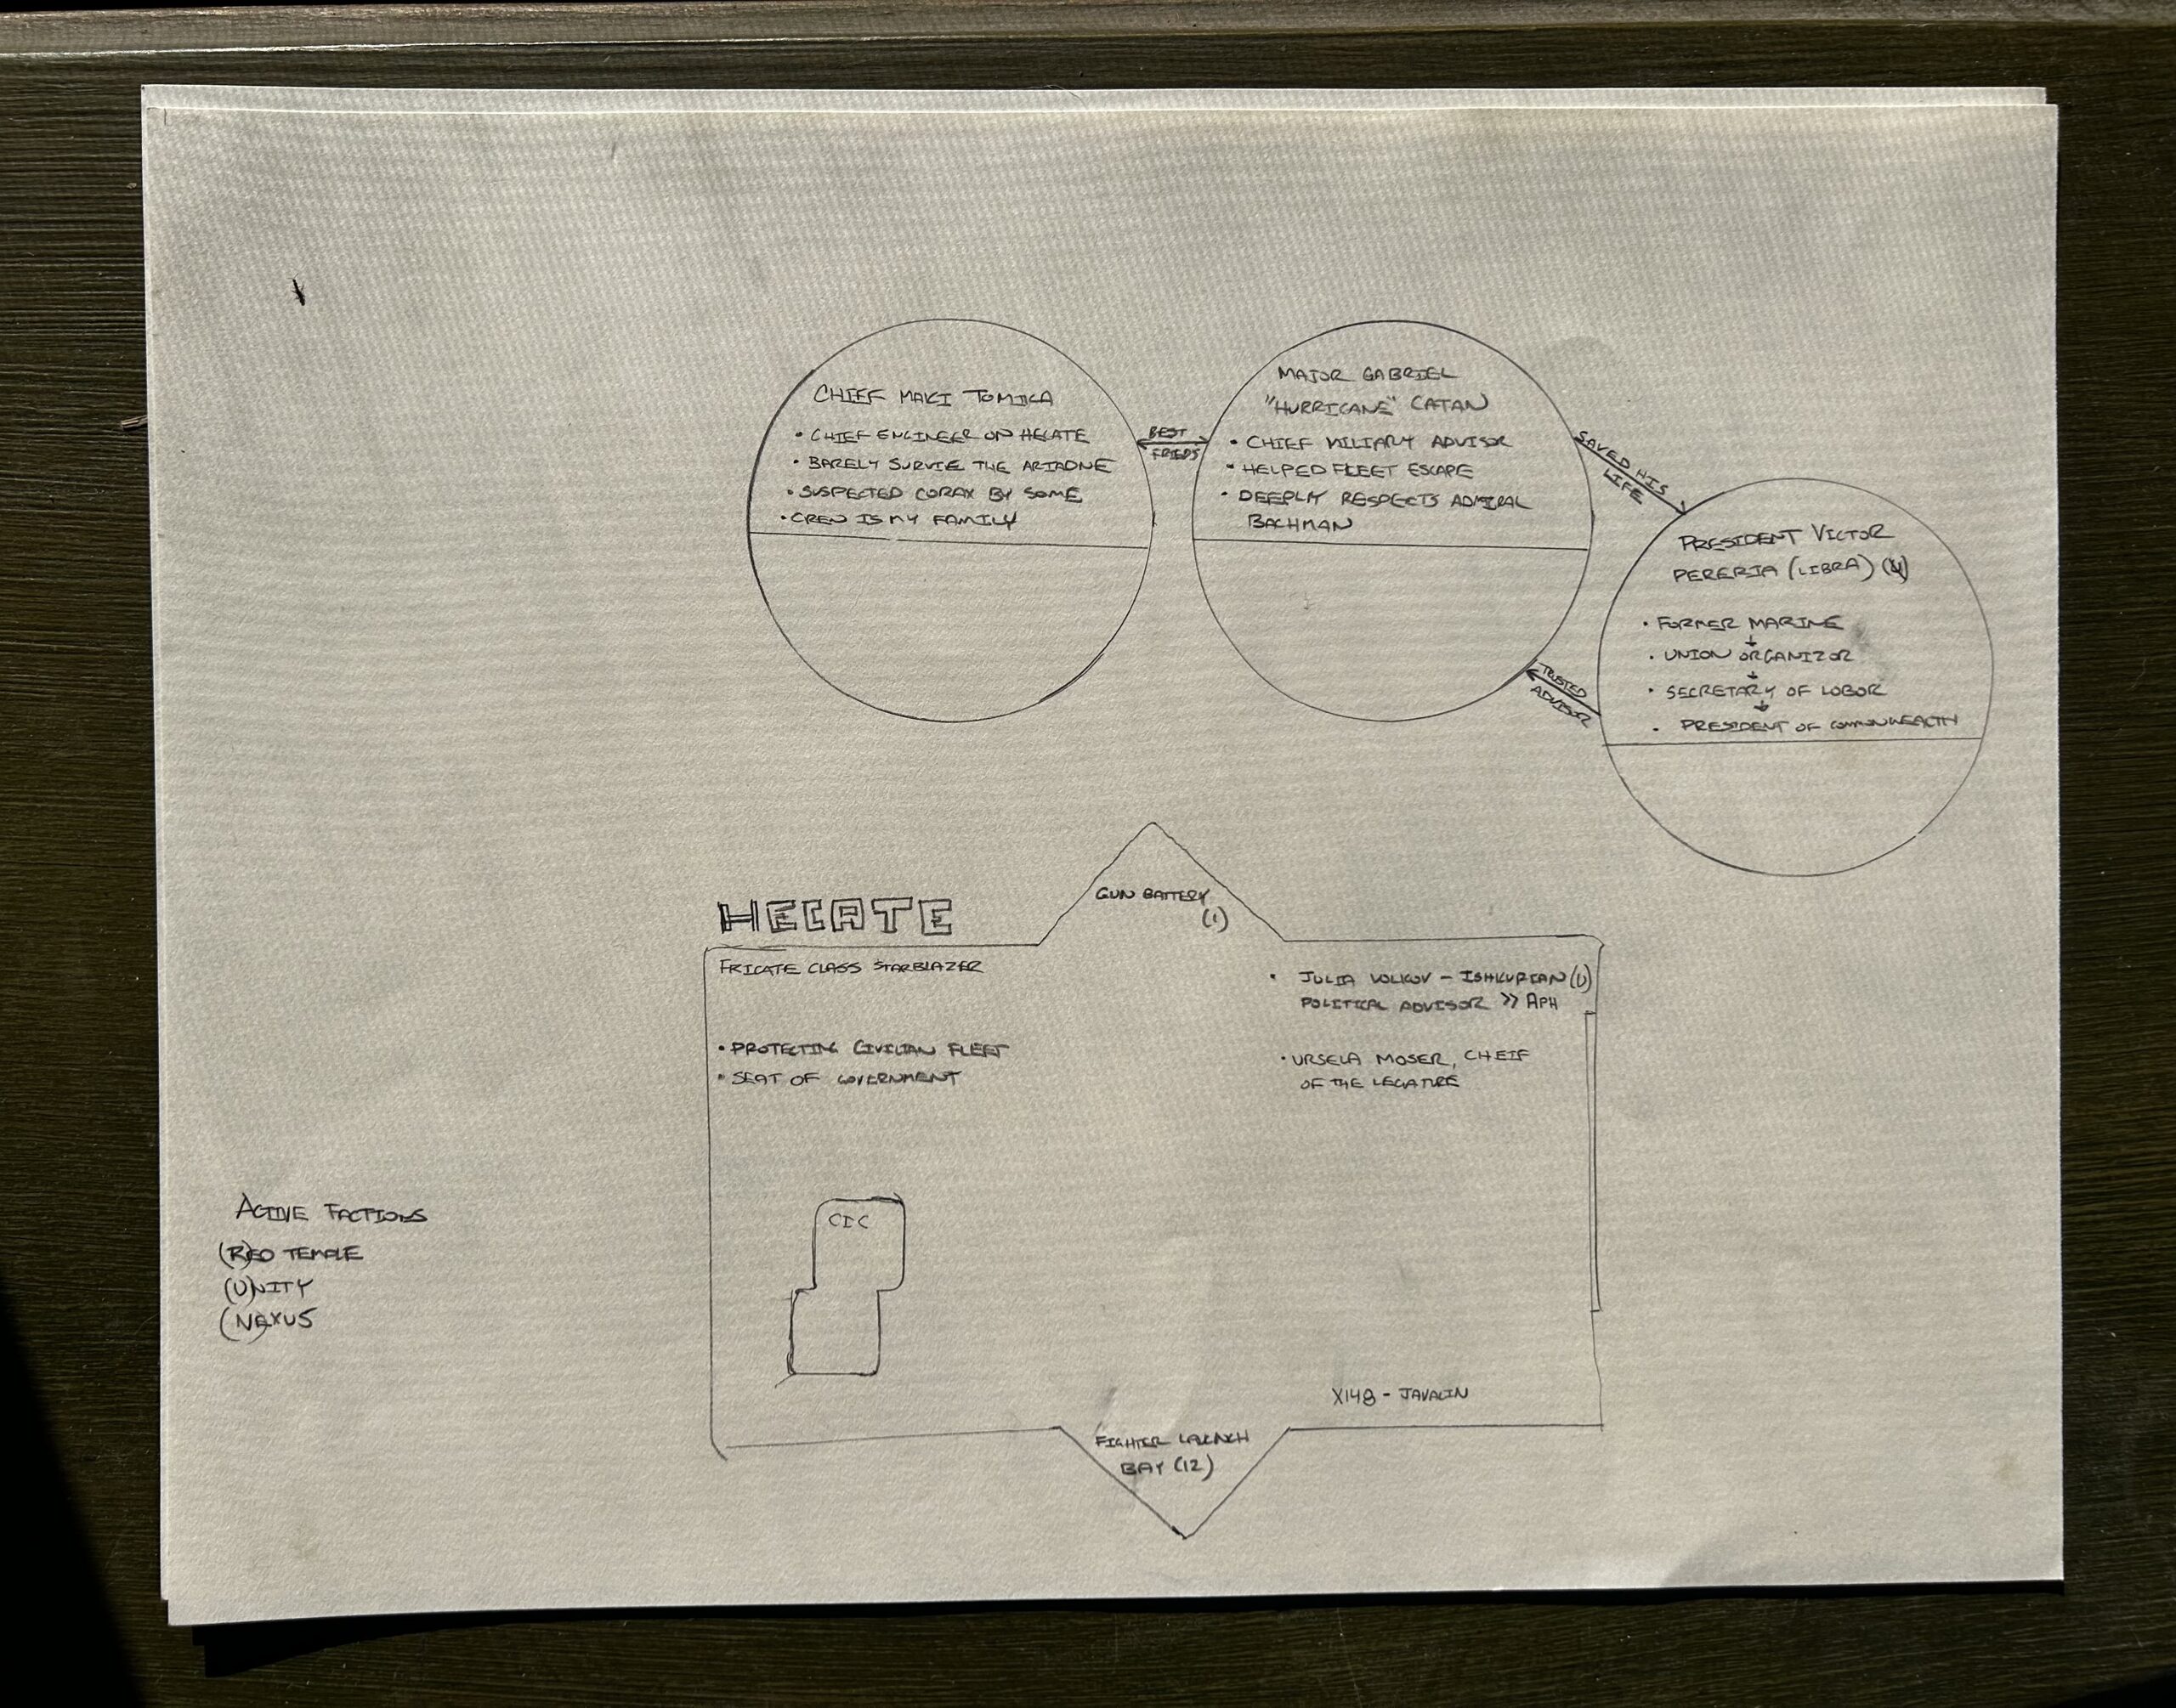 CHIEF MAKI TOMIKA
• CHIEF ENGINEER ON HECATE
• BARELY SURVIE THE ARIADNE
• SUSPECTED CORAX BY SOME
• CREW IS MY FAMILY
BEST
FRIEDS
MAJOR GABRIEL
"HURRICANE" CATAN
• CHIEF MILITARY ADVISOR
• HELPED FLEET ESCAPE
• DEEPLY RESPECTS ADMIRAL
BACHMAN
SAVED HIS
LIFE
TRUSTED
ADVISOR
PRESIDENT VICTOR
PERERIA (LIBRA)
• FORMER MARINE
• UNION ORGANIZOR
• SECRETARY OF LOBOR
• PRESIDENT OF COMMONWEALTH
GUN BATTERY
(1)
HECATE
FRIGATE CLASS STARBLAZER
• PROTECTING CIVILIAN FLEET
• SEAT OF GOVERNMENT
• JULIA VOLKOV - ISHKURIAN (U)
POLITICAL ADVISOR >> APH
• URSELA MOSER, CHEIF
OF THE LEGATURE
CIC
X148 - JAVALIN
FIGHTER LAUNCH
BAY (12)
ACTIVE FACTIONS
(R)ED TEMPLE
(U)NITY
(NE)XUS